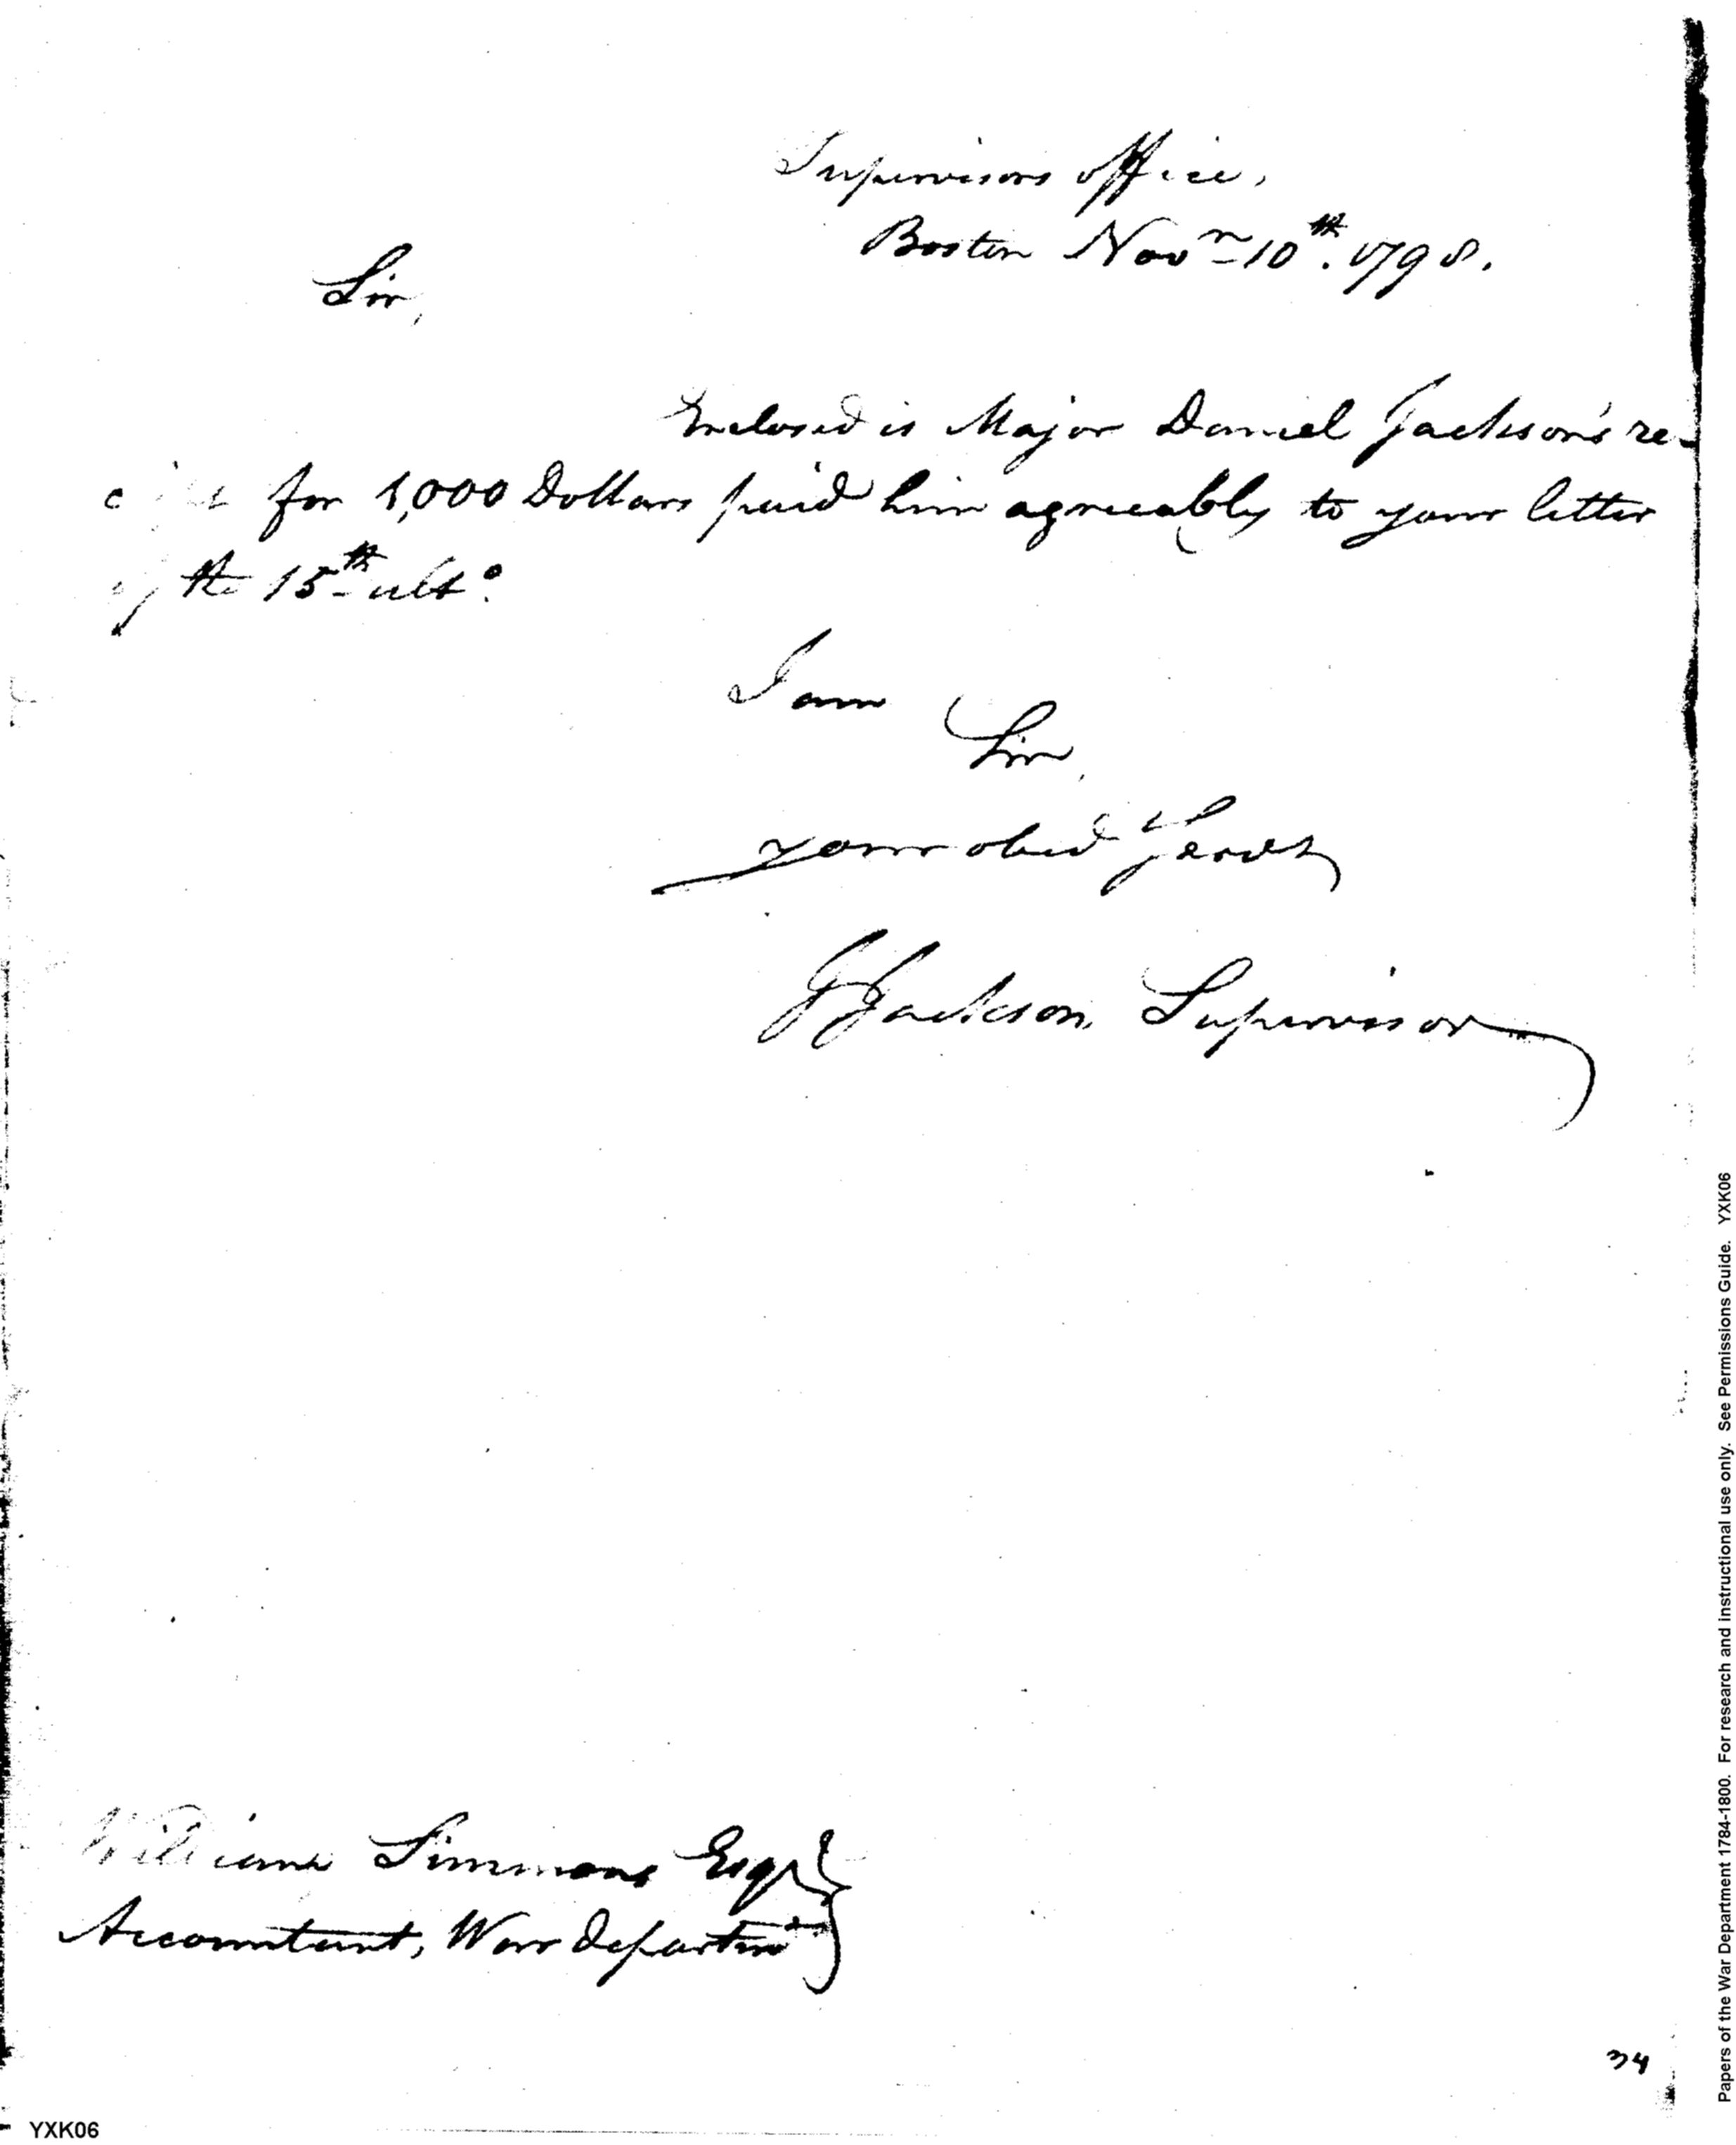 Supervisors office,
Boston Novr 10th. 1798.
Sir,
Enclosed is Major Daniel Jackson's re-
for 1,000 Dollars paid him agreeably to your letter
of the 15th ulto.
I am
Sir,
your obed Servt
J Jackson, Supervisor
William Simmons Esqr
Accountant, War Departmt
34
YXK06
Papers of the War Department 1784-1800. For research and instructional use only. See Permissions Guide. YXK06